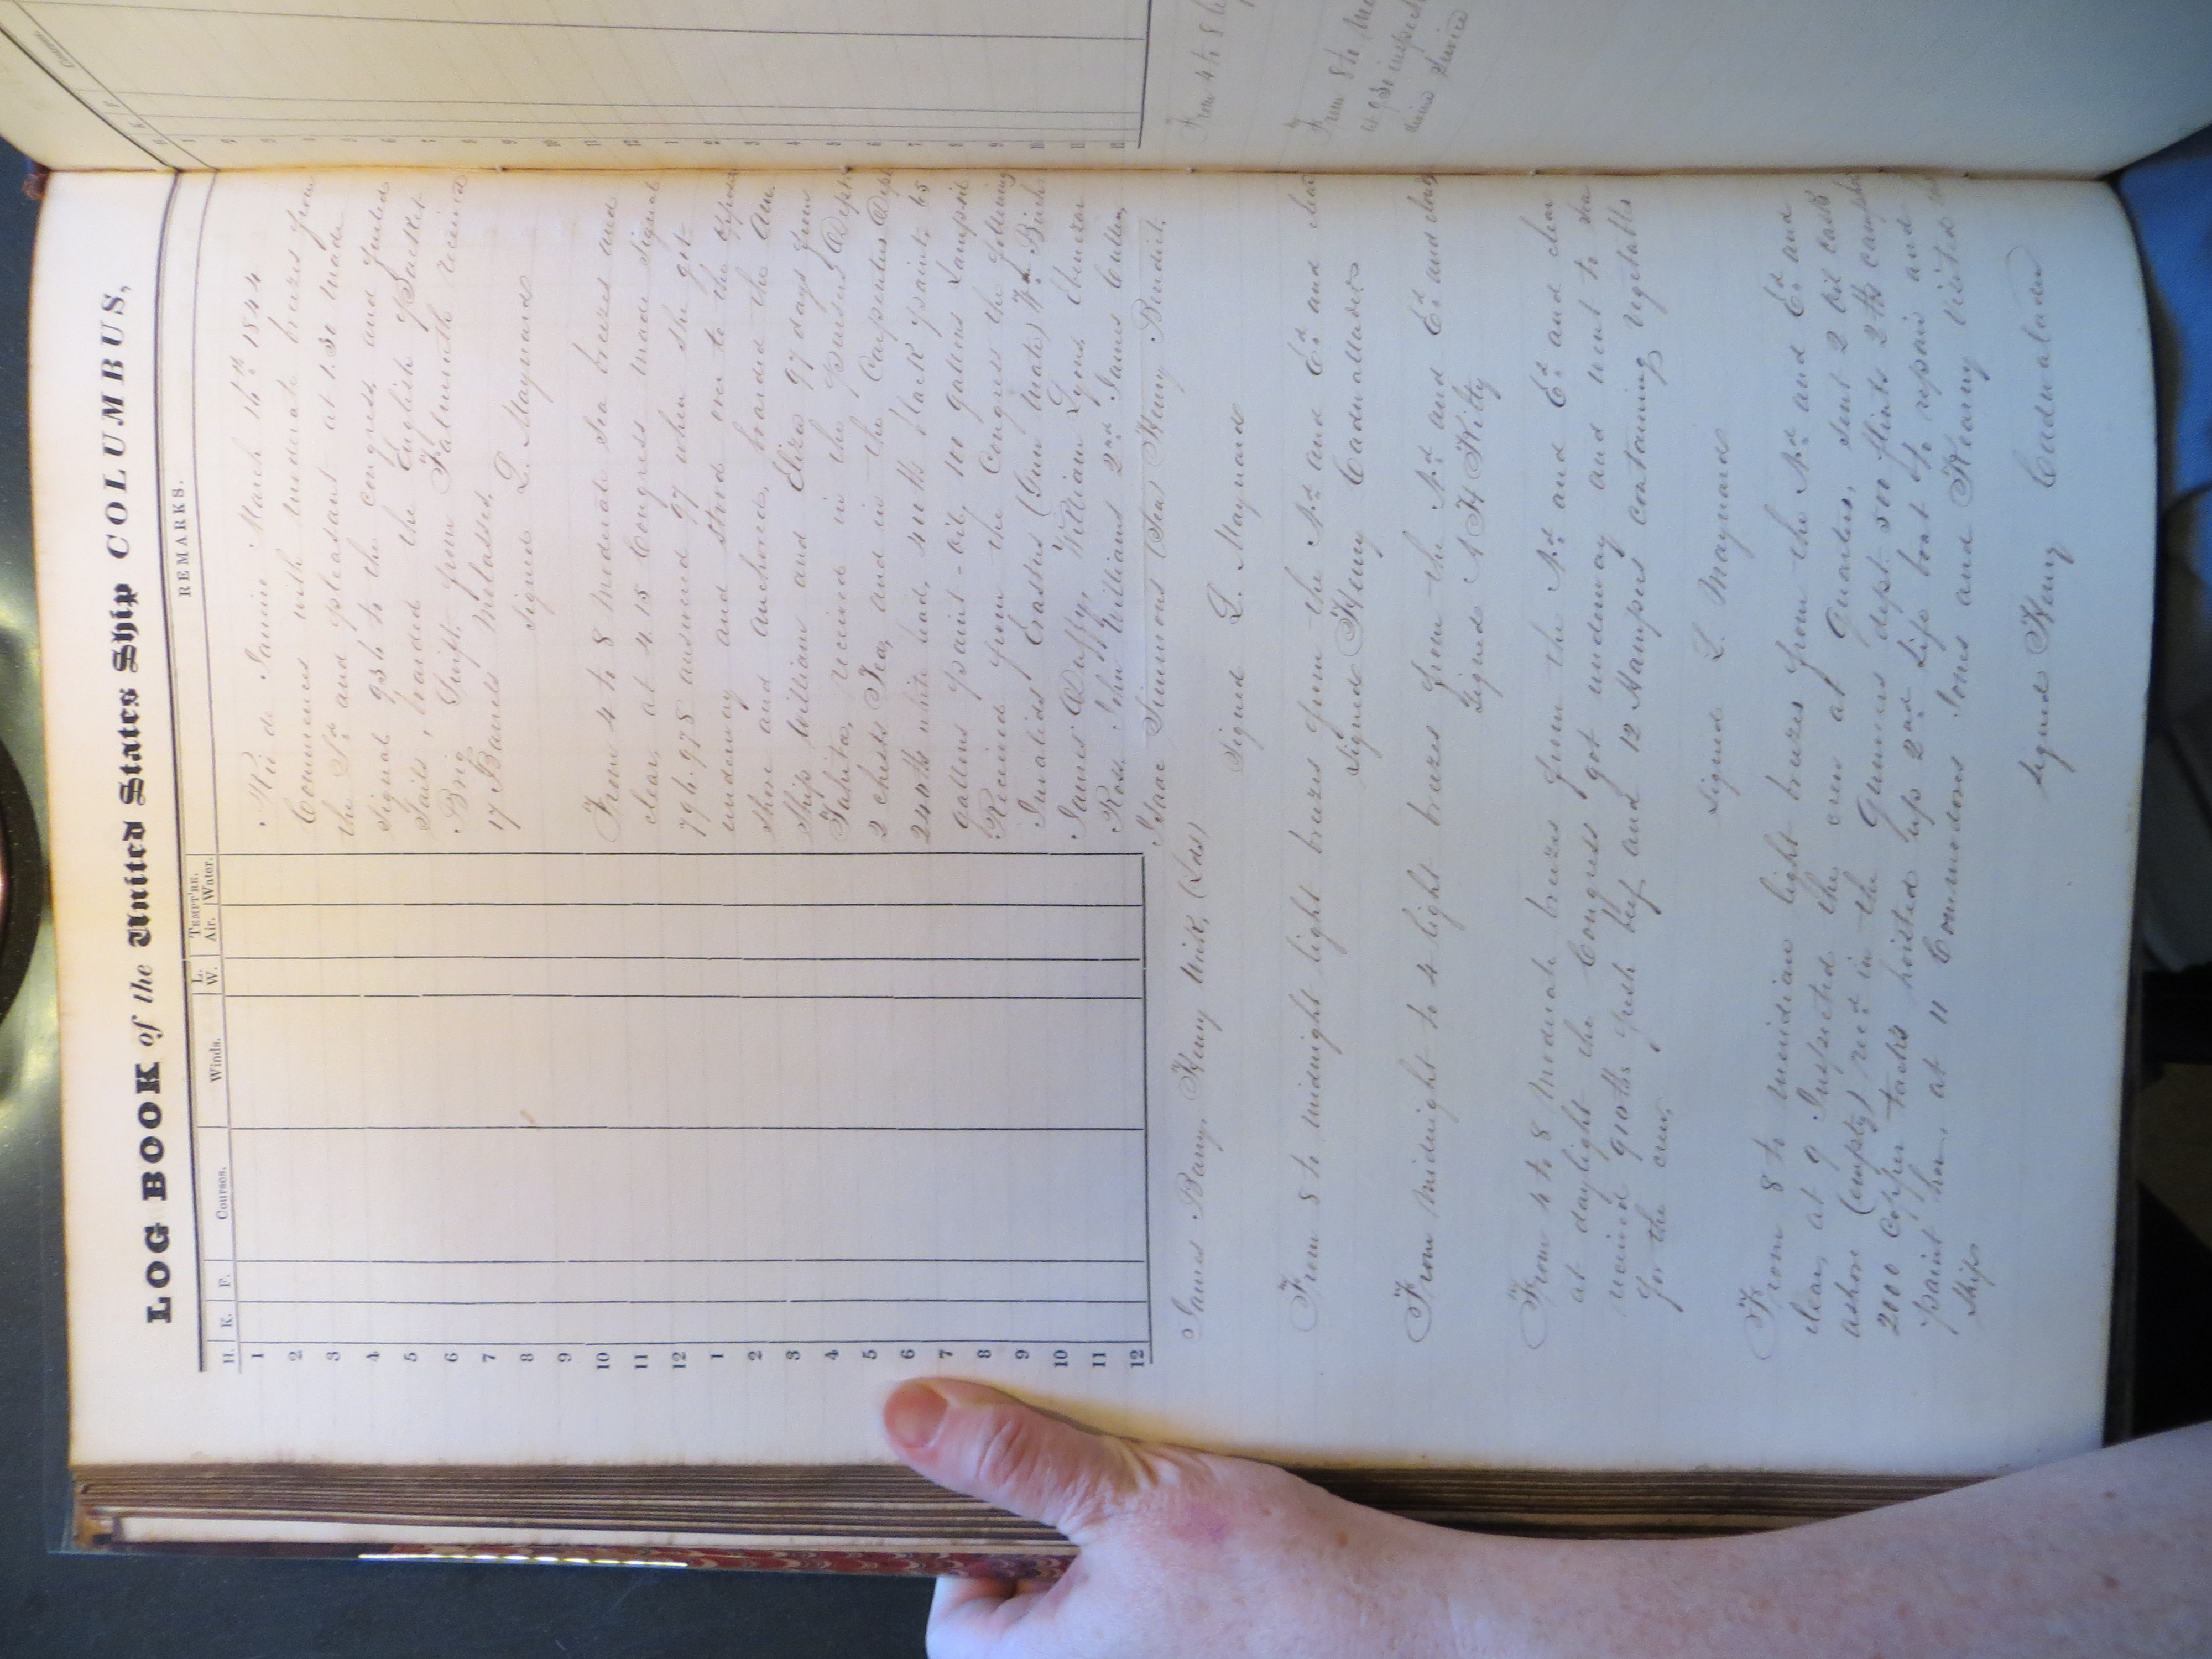 LOG BOOK of the United States Ship COLUMBUS,
H. K. F. Courses. Winds. L. W. TEMPT'RE. Air. Water. REMARKS.
1
2
3
4
5
6
7
8
9
10
11
12
1
2
3
4
5
6
7
8
9
10
11
12
Rio de Janeiro March 16th 1844
Commences with moderate breezes from
the Sd and pleasant at 1.30 made
signal 936 to the Congress and furled
sails, boarded the English Packet
Brig Swift from Falmouth received
17 Barrels Molasses.
Signed L. Maynard
From 4 to 8 Moderate sea breezes and
clear, at 4.15 Congress made signal
796.975 answered 97 when she got
underway and stood over to the
shore and anchored, boarded the Am.
Ship William and Eliza 97 days from
Tahita, received in the Pursers Dept
2 chests Tea, and in the Carpenters Dept
244 lbs white lead, 40 lbs black paint, 65
gallons paint-oil, 100 gallons Lampoil
Received from the Congress the following
Invalids Erastus (Gun Mate) Wm Birch
James Duffy, William Lynd, Ebenezer
Ross, John Williams 2nd James Cullen,
Isaac Simmons (Sea) Henry Benedict.
James Barry, Henry Wick, (Lds)
Signed L. Maynard
From 8 to midnight light breezes from the Nd and Ed and clear
Signed Henry Cadwallader
From Midnight to 4 light breezes from the Nd and Ed and clear
Signed A H Kilty
From 4 to 8 Moderate breezes from the Nd and Ed and clear
at daylight the Congress got underway and went to sea
received 910 lbs fresh beef and 12 Hampers containing vegetables
for the crew.
Signed L. Maynard
From 8 to meridian light breezes from the Nd and Ed and
clear, at 9 Inspected the crew at Quarters, sent 2 oil casks
ashore (empty) recd in the Gunners dept 500 flints 2 lbs camphor
2000 Copper tacks hoisted up 2nd Life boat to repair and
paint her, at 11 Commodores Jones and Kearny visited the
Ship
Signed Henry Cadwalader
From 4 to 8
From 8 to
at 9.30 inspected
divine service